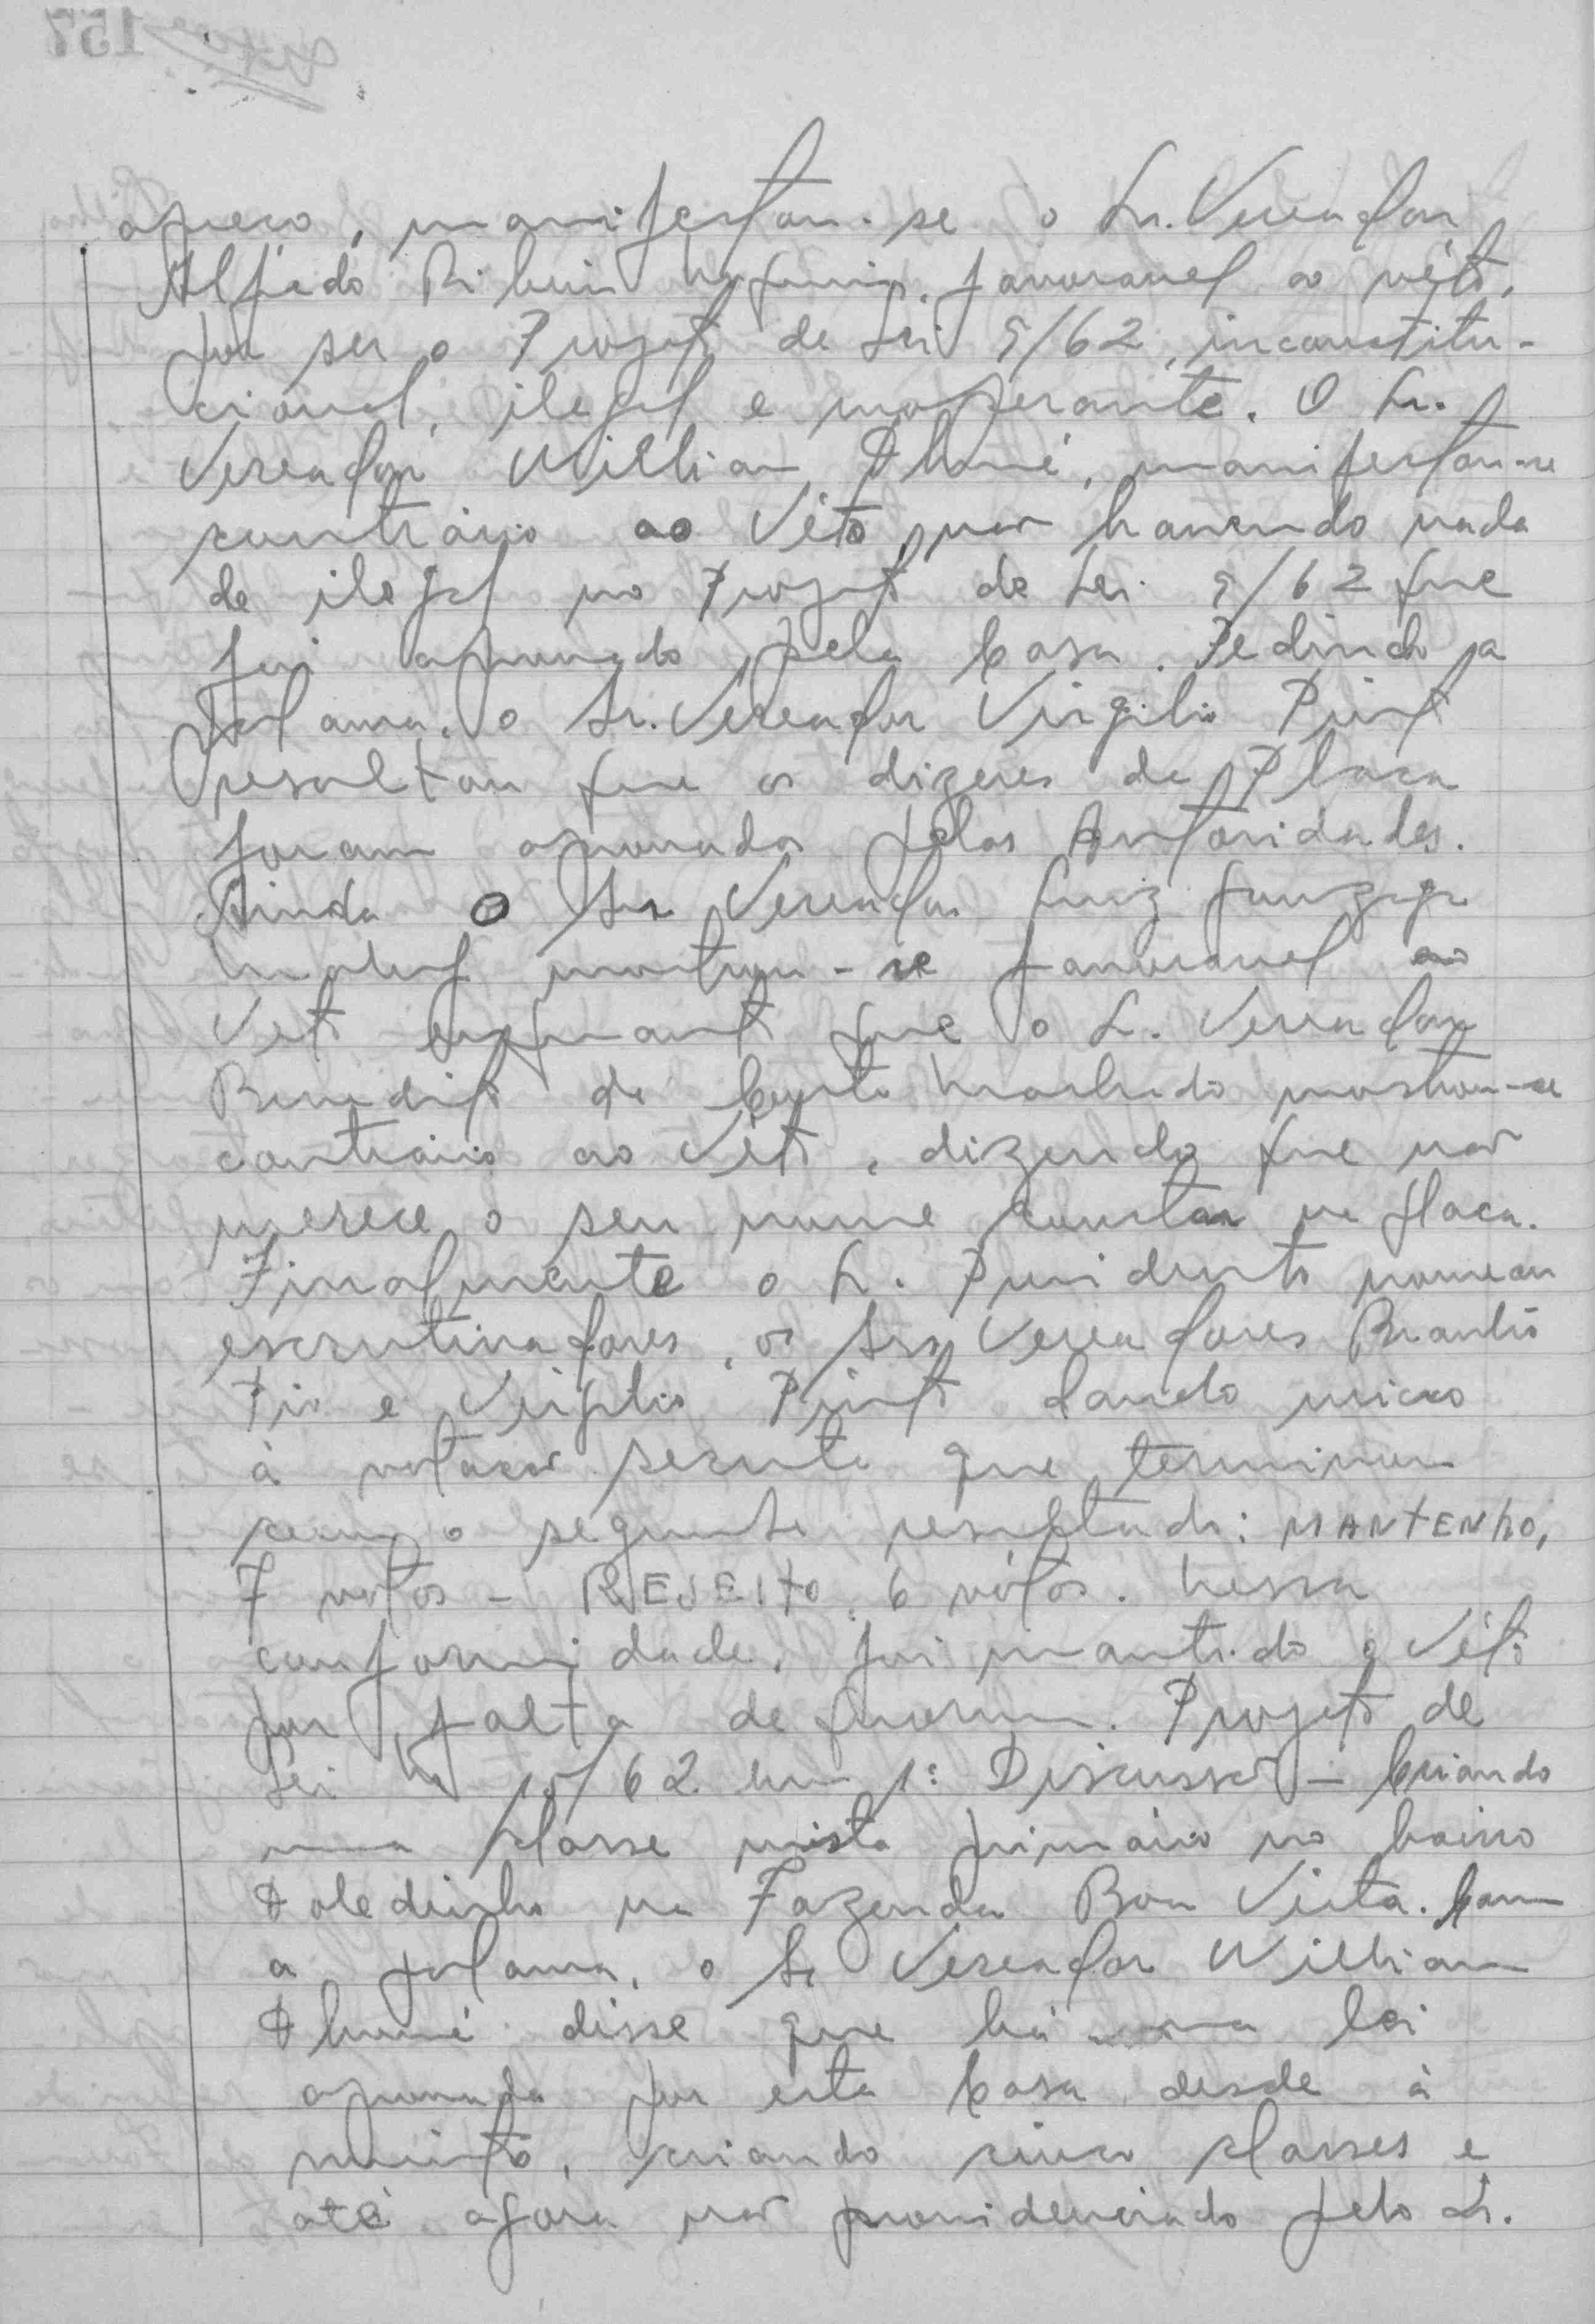 apreço, manifestou-se o Sr. Vereador
Alfredo Ribeiro favoravel ao véto,
por ser o Projeto de Lei 9/62, inconstitu-
cional, ilegal e inoperante. O Sr.
Vereador Willian Thomé, manifestou-se
contrário ao Véto, não havendo nada
de ilegal no Projeto de Lei 9/62 que
foi aprovado pela Casa. Pedindo a
palavra, o Sr. Vereador Virgilio Pinto
resaltou que os dizeres da Placa
foram aprovados pelas Autoridades.
Ainda o Sr. Vereador Luiz Gonzaga
mostrou-se favoravel ao
Veto enquanto que o Sr. Vereador
Benedito de Couto Machado mostrou-se
contrário ao Véto, dizendo que não
merece o seu nome constar na placa.
Finalmente o Sr. Presidente nomeou
escrutinadores, os Srs. Vereadores Braulio
Pio e Virgilio Pinto dando inicio
à votação secreta que terminou
com o seguinte resultado: MANTENHO,
7 votos - REJEITO, 6 vótos. Nessa
conformidade, foi mantido o Véto
por falta de quorum. Projeto de
Lei Nº 15/62 em 1ª Discussão - Criando
uma classe mista primário no bairro
Toledinho na Fazenda Boa Vista. Com
a palavra, o Sr Vereador Willian
Thomé disse que há uma lei
aprovada por esta Casa desde à
muito, criando cinco classes e
até agora não providenciado pelo Sr.